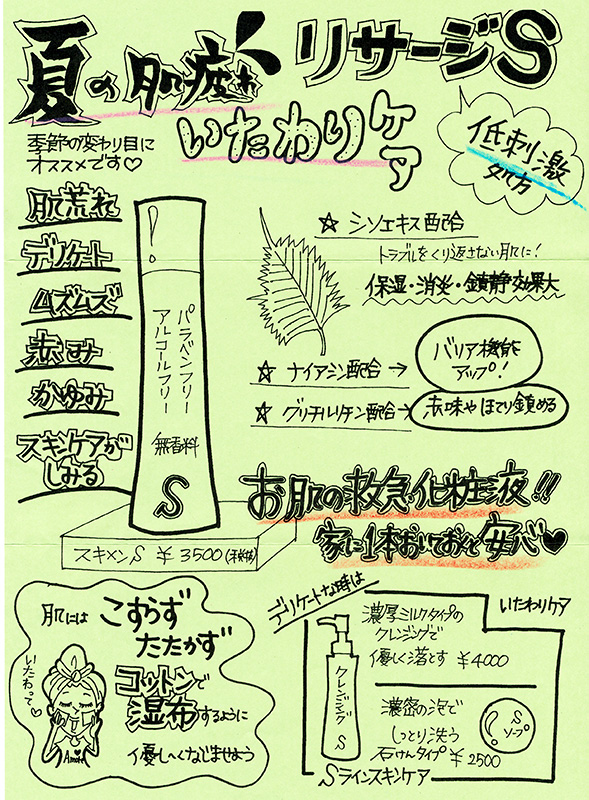 夏の肌疲れ
リサージS
いたわりケア
季節の変わり目に
オススメです♡
低刺激
処方
肌荒れ
デリケート
ムズムズ
赤み
かゆみ
スキンケアが
しみる
パラベンフリー
アルコールフリー
無香料
S
スキメンS ¥3500(税抜)
☆ シソエキス配合
トラブルをくり返さない肌に!
保湿・消炎・鎮静効果大
☆ ナイアシン配合→
バリア機能
アップ!
☆ グリチルリチン配合→
赤味やほてり鎮める
お肌の救急化粧液!!
家に1本おいておくと安心♥
肌には
こすらず
たたかず
コットンで
湿布するように
優し〜くなじませよう
いたわって♡
デリケートな時は
いたわりケア
クレンジング
S
濃厚ミルクタイプの
クレンジングで
優しく落とす ¥4000
濃密の泡で
しっとり洗う
石けんタイプ ¥2500
S
ソープ
Sラインスキンケア